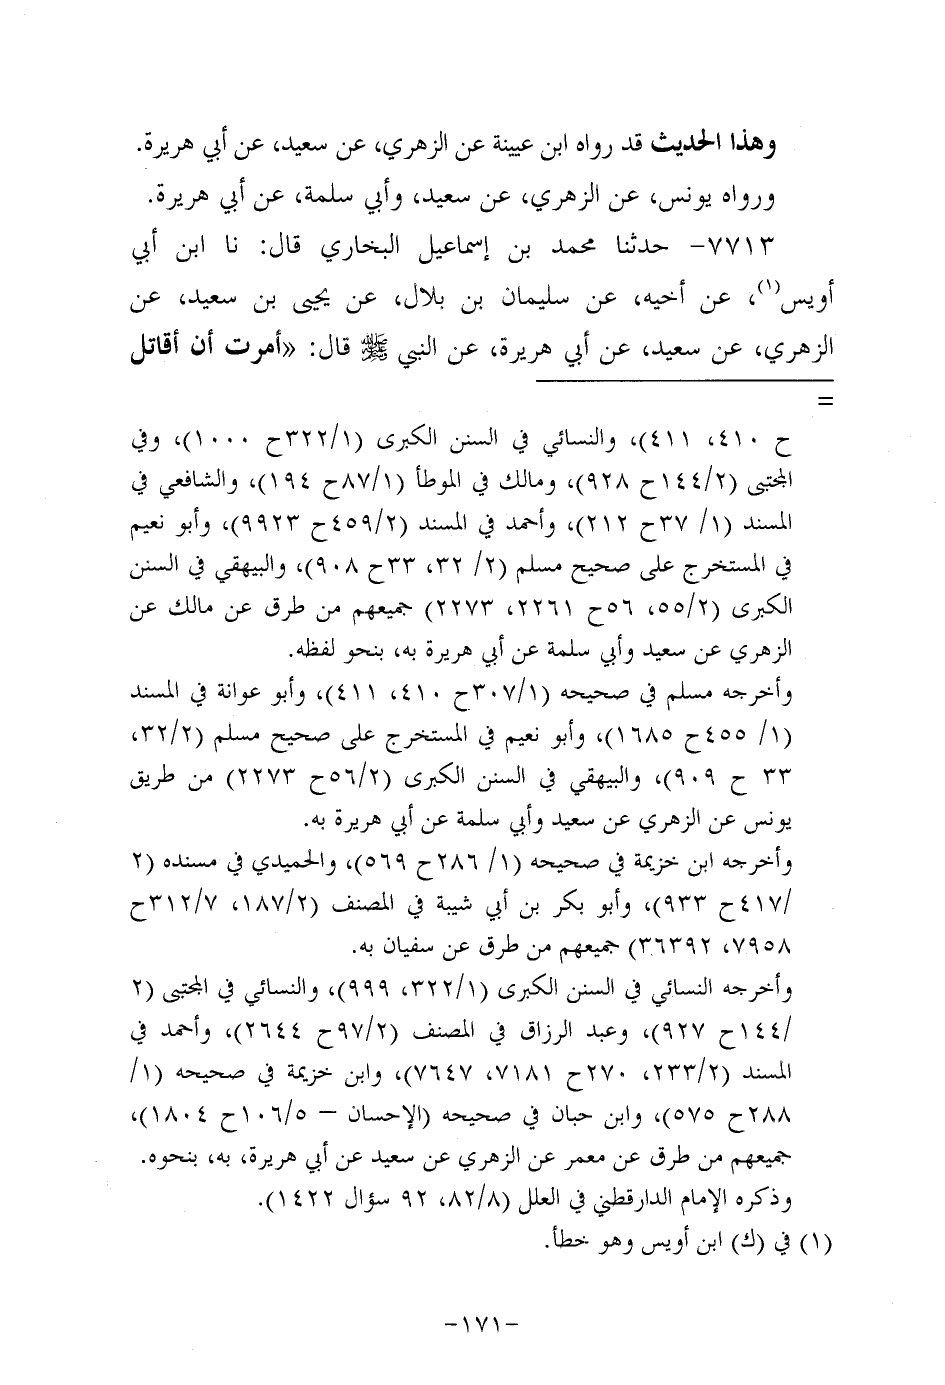 وهذا الحديث قد رواه ابن عيينة عن الزهري، عن سعيد، عن أبي هريرة.
ورواه يونس، عن الزهري، عن سعيد، وأبي سلمة، عن أبي هريرة.
٧٧١٣- حدثنا محمد بن إسماعيل البخاري قال: نا ابن أبي
أويس(١)، عن أخيه، عن سليمان بن بلال، عن يحيى بن سعيد، عن
الزهري، عن سعيد، عن أبي هريرة، عن النبي ﷺ قال: «أمرت أن أقاتل
=
ح ٤١٠، ٤١١)، والنسائي في السنن الكبرى (١/٣٢٢ح ١٠٠٠)، وفي
المجتبى (٢/١٤٤ح ٩٢٨)، ومالك في الموطأ (١/٨٧ح ١٩٤)، والشافعي في
المسند (١/ ٣٧ح ٢١٢)، وأحمد في المسند (٢/٤٥٩ح ٩٩٢٣)، وأبو نعيم
في المستخرج على صحيح مسلم (٢/ ٣٢، ٣٣ح ٩٠٨)، والبيهقي في السنن
الكبرى (٢/٥٥، ٥٦ح ٢٢٦١، ٢٢٧٣) جميعهم من طرق عن مالك عن
الزهري عن سعيد وأبي سلمة عن أبي هريرة به، بنحو لفظه.
وأخرجه مسلم في صحيحه (١/٣٠٧ح ٤١٠، ٤١١)، وأبو عوانة في المسند
(١/ ٤٥٥ح ١٦٨٥)، وأبو نعيم في المستخرج على صحيح مسلم (٢/٣٢،
٣٣ ح ٩٠٩)، والبيهقي في السنن الكبرى (٢/٥٦ح ٢٢٧٣) من طريق
يونس عن الزهري عن سعيد وأبي سلمة عن أبي هريرة به.
وأخرجه ابن خزيمة في صحيحه (١/ ٢٨٦ح ٥٦٩)، والحميدي في مسنده (٢
/٤١٧ح ٩٣٣)، وأبو بكر بن أبي شيبة في المصنف (٢/١٨٧، ٧/٣١٢ح
٧٩٥٨، ٣٦٣٩٢) جميعهم من طرق عن سفيان به.
وأخرجه النسائي في السنن الكبرى (١/٣٢٢، ٩٩٩)، والنسائي في المجتبى (٢
/١٤٤ح ٩٢٧)، وعبد الرزاق في المصنف (٢/٩٧ح ٢٦٤٤)، وأحمد في
المسند (٢/٢٣٣، ٢٧٠ح ٧١٨١، ٧٦٤٧)، وابن خزيمة في صحيحه (١/
٢٨٨ح ٥٧٥)، وابن حبان في صحيحه (الإحسان – ٥/١٠٦ح ١٨٠٤)،
جميعهم من طرق عن معمر عن الزهري عن سعيد عن أبي هريرة، به، بنحوه.
وذكره الإمام الدارقطني في العلل (٨/٨٢، ٩٢ سؤال ١٤٢٢).
(١) في (ك) ابن أويس وهو خطأ.
-١٧١-